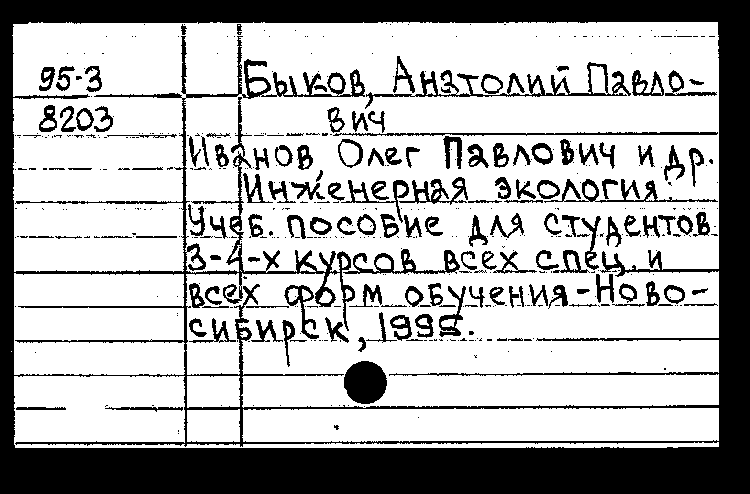 95-3 Быков, Анатолий Павло-
8203 вич
Иванов, Олег Павлович и др.
Инженерная экология:
Учеб. пособие для студентов
3-4-х курсов всех спец. и
всех форм обучения-Ново-
сибирск, 1995.